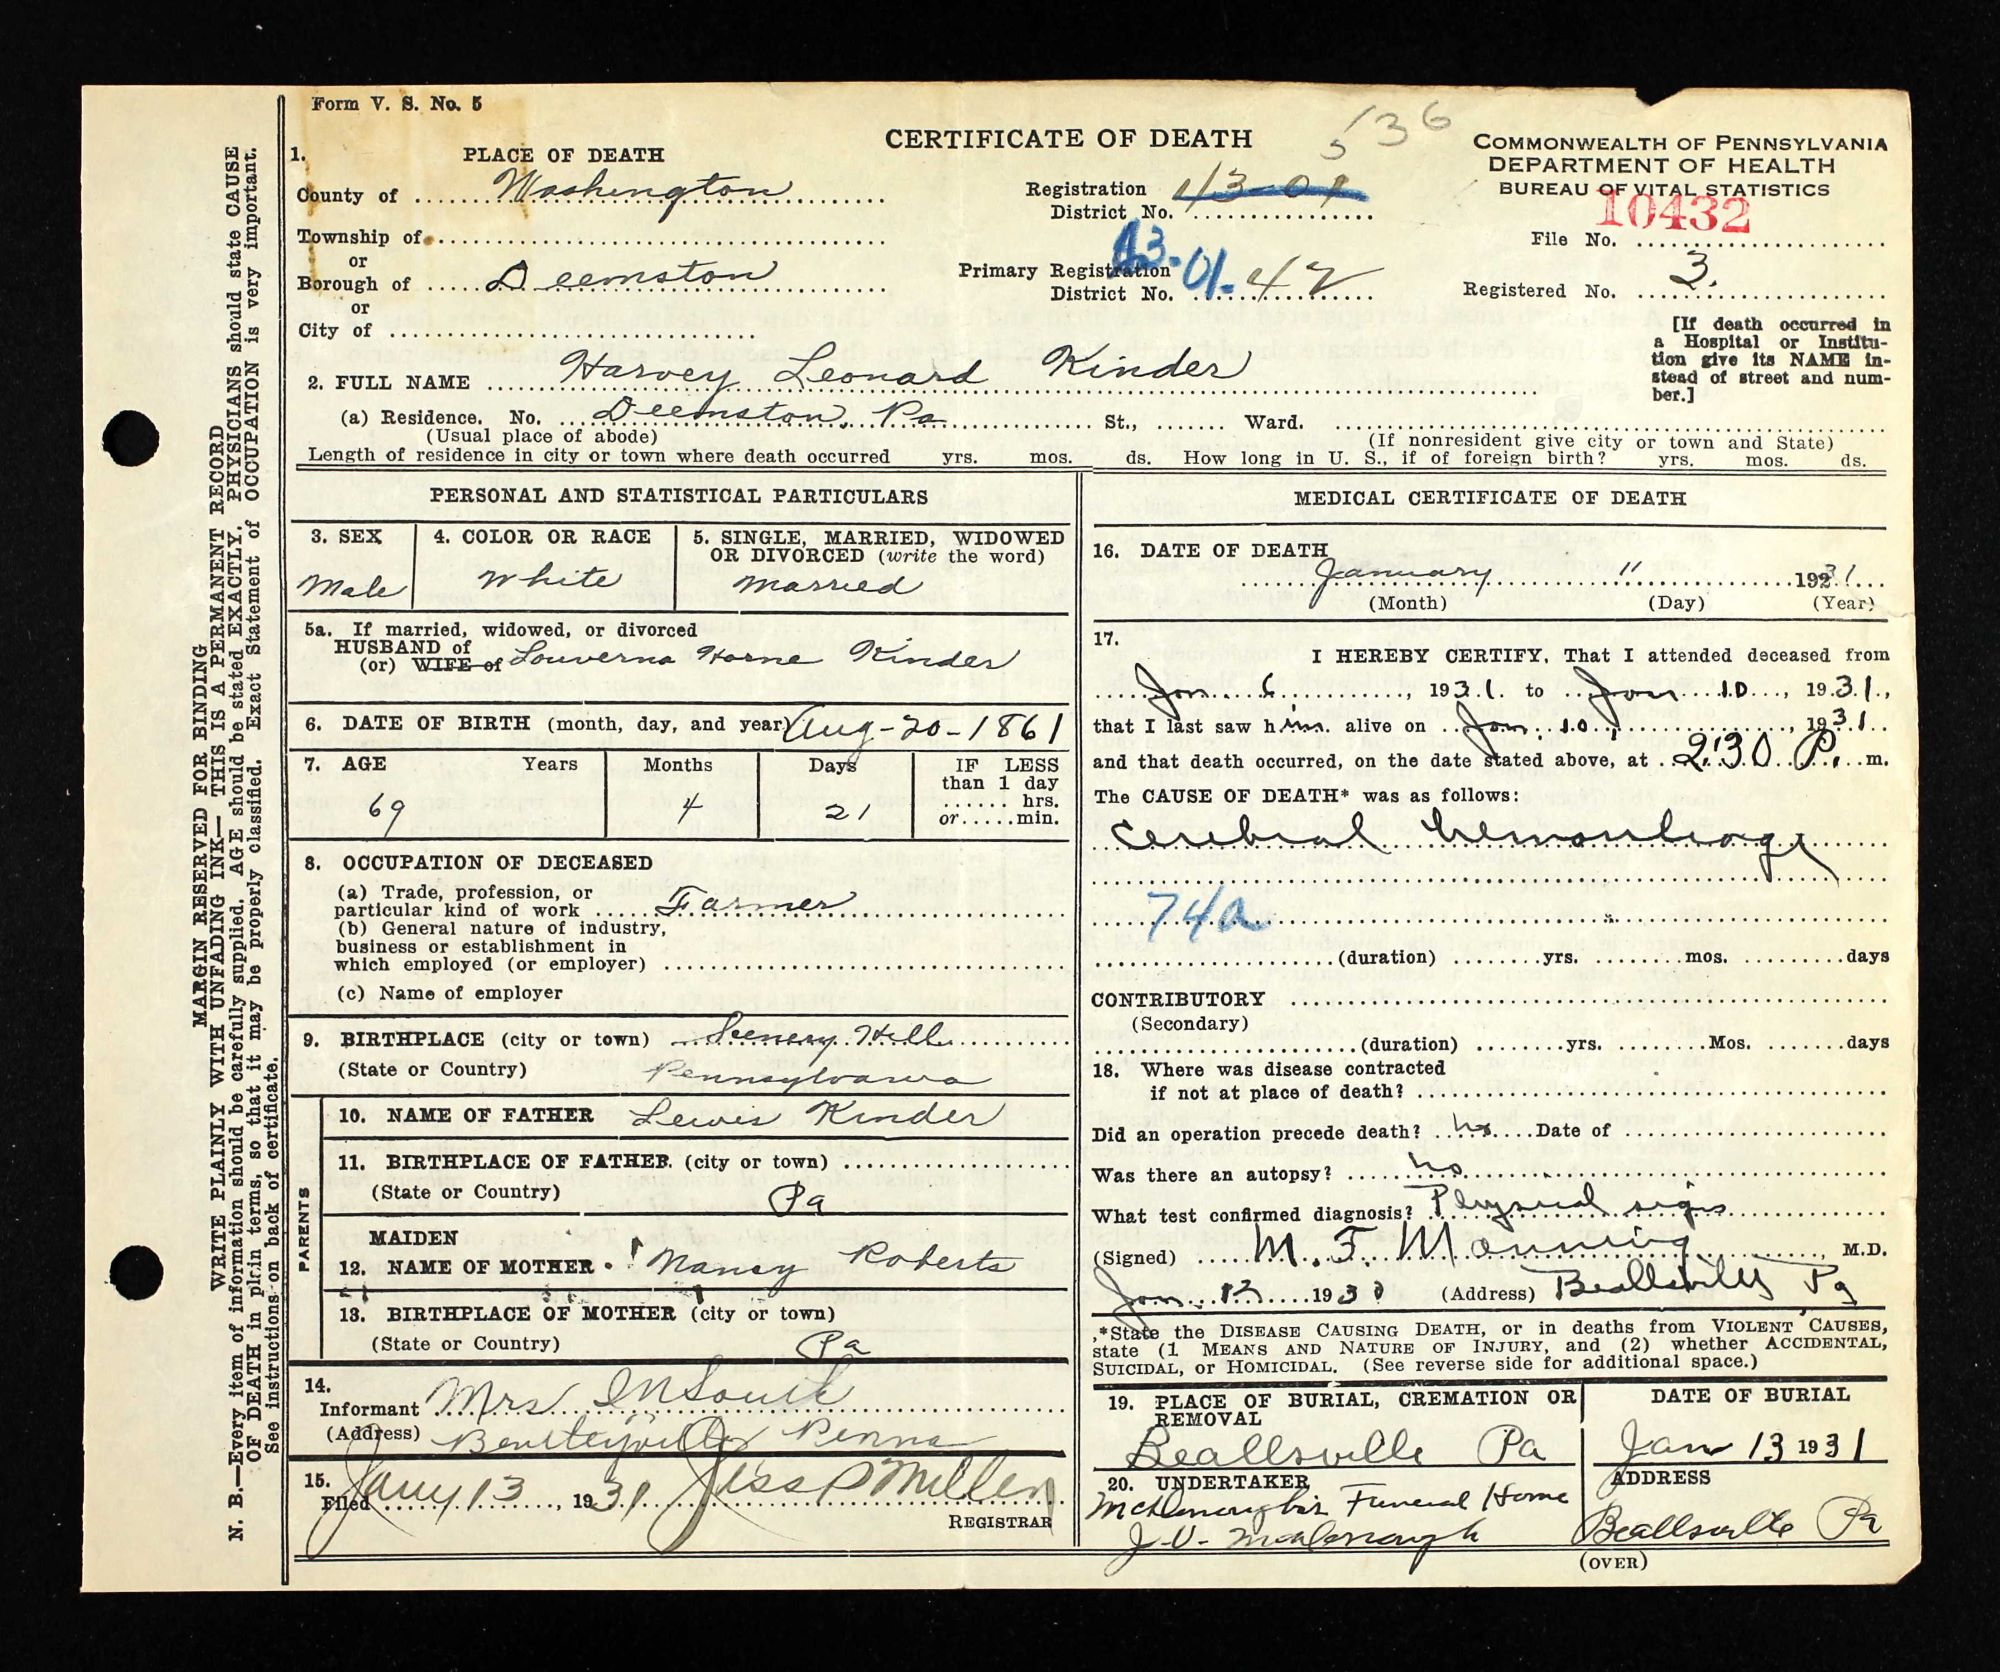 Form V. S. No. 5
536
CERTIFICATE OF DEATH
COMMONWEALTH OF PENNSYLVANIA
DEPARTMENT OF HEALTH
BUREAU OF VITAL STATISTICS
1. PLACE OF DEATH
County of Washington
Township of
or
Borough of Deemston
or
City of
Registration District No. 43-01
Primary Registration District No. 43-01-42
10432
File No.
Registered No. 3.
[If death occurred in
a Hospital or Institu-
tion give its NAME in-
stead of street and num-
ber.]
2. FULL NAME Harvey Leonard Kinder
(a) Residence. No. Deemston, Pa St., Ward.
(Usual place of abode) (If nonresident give city or town and State)
Length of residence in city or town where death occurred yrs. mos. ds. How long in U. S., if of foreign birth? yrs. mos. ds.
PERSONAL AND STATISTICAL PARTICULARS
3. SEX
Male
4. COLOR OR RACE
White
5. SINGLE, MARRIED, WIDOWED
OR DIVORCED (write the word)
Married
5a. If married, widowed, or divorced
HUSBAND of
(or) WIFE of Louverna Horne Kinder
6. DATE OF BIRTH (month, day, and year) Aug-20-1861
7. AGE Years Months Days IF LESS
than 1 day
hrs.
or min.
69 4 21
8. OCCUPATION OF DECEASED
(a) Trade, profession, or
particular kind of work Farmer
(b) General nature of industry,
business or establishment in
which employed (or employer)
(c) Name of employer
9. BIRTHPLACE (city or town) Scenery Hill
(State or Country) Pennsylvania
PARENTS
10. NAME OF FATHER Lewis Kinder
11. BIRTHPLACE OF FATHER (city or town)
(State or Country) Pa
12. MAIDEN
NAME OF MOTHER Nancy Roberts
13. BIRTHPLACE OF MOTHER (city or town)
(State or Country) Pa
14.
Informant Mrs
(Address) Penna
15.
Filed Jany 13, 1931 Jess P Miller
REGISTRAR
MEDICAL CERTIFICATE OF DEATH
16. DATE OF DEATH
January 11 1931
(Month) (Day) (Year)
17.
I HEREBY CERTIFY, That I attended deceased from
Jan 6, 1931 to Jan 10, 1931,
that I last saw him alive on Jan 10, 1931
and that death occurred, on the date stated above, at 2:30 P. m.
The CAUSE OF DEATH* was as follows:
Cerebral hemorrhage
74a
(duration) yrs. mos. days
CONTRIBUTORY
(Secondary)
(duration) yrs. Mos. days
18. Where was disease contracted
if not at place of death?
Did an operation precede death? no Date of
Was there an autopsy? no
What test confirmed diagnosis? Physical signs
(Signed) M. F. Manning, M.D.
Jan 12 1931 (Address) Beallsville Pa
*State the DISEASE CAUSING DEATH, or in deaths from VIOLENT CAUSES,
state (1 MEANS AND NATURE OF INJURY, and (2) whether ACCIDENTAL,
SUICIDAL, or HOMICIDAL. (See reverse side for additional space.)
19. PLACE OF BURIAL, CREMATION OR
REMOVAL
Beallsville Pa
DATE OF BURIAL
Jan 13 1931
20. UNDERTAKER
Funeral Home
J. V.
ADDRESS
Beallsville Pa
(OVER)
MARGIN RESERVED FOR BINDING
WRITE PLAINLY WITH UNFADING INK—THIS IS A PERMANENT RECORD
N. B.—Every item of information should be carefully supplied. AGE should be stated EXACTLY. PHYSICIANS should state CAUSE
OF DEATH in plain terms, so that it may be properly classified. Exact Statement of OCCUPATION is very important.
See instructions on back of certificate.